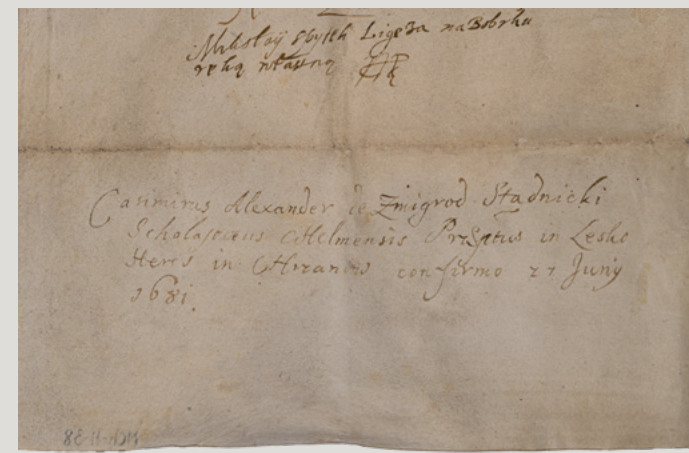 Mikołaÿ Spytek Ligęza na Bobrku
ręką własną
Casimirus Alexander de Zmigrod Stadnicki
Scholasticus Chelmensis Præptus in Lesko
Heres in Chrzanow confirmo 27 Junÿ
1681.
MCH-H-38